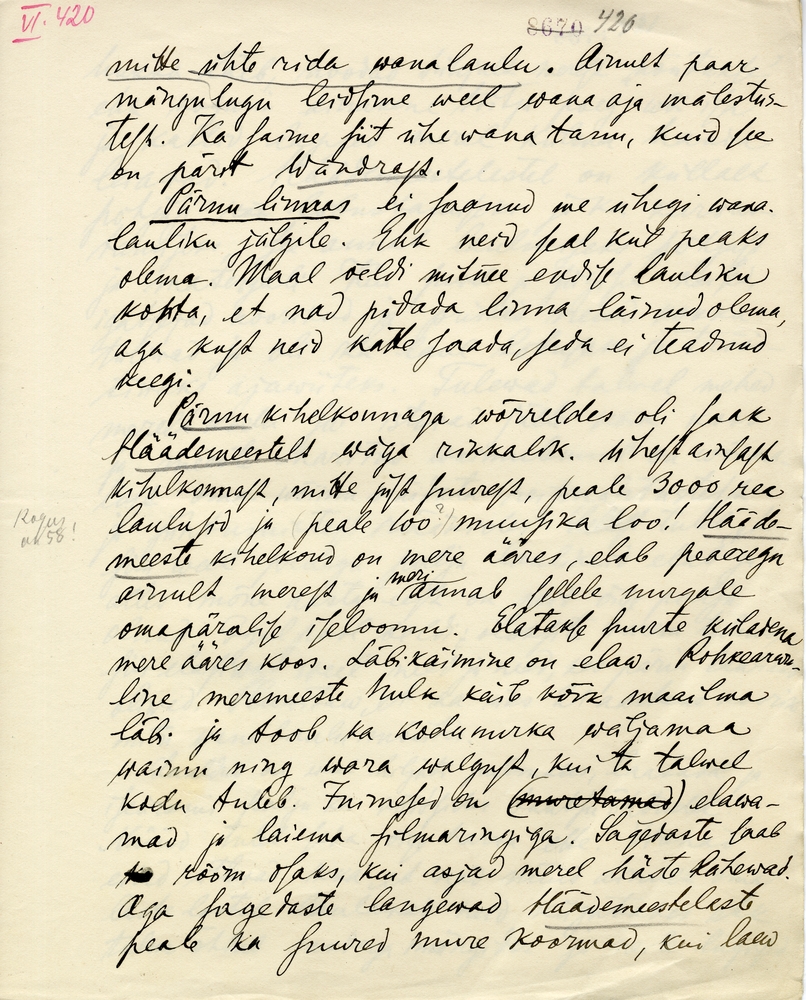 VI. 420
8670 420
mitte ühte rida wana laulu. Ainult paar
mängulugu leidsime weel wana aja mälestus-
test. Ka saime siit ühe wana tanu, kuid see
on pärit Wändrast.
Pärnu linnas ei saanud me ühegi wana-
lauliku jälgile. Ehk neid seal küll peaks
olema. Maal öeldi mitme endise lauliku
kohta, et nad pidada linna läinud olema,
aga kust neid kätte saada, seda ei teadnud
keegi.
Pärnu kihelkonnaga wõrreldes oli saak
Häädemeestelt wäga rikkalik. Ühest ainsast
kihelkonnast, mitte just suurest, peale 3000 rea
laulusid ja (peale 100?) muusika loo! Hääde-
Kogus
on 58!
meeste kihelkond on mere ääres, elab peaaegu
ainult merest ja meri annab sellele nurgale
omapäralise iseloomu. Elatakse suurte küladena
mere ääres koos. Läbikäimine on elaw. Rohkearwu-
line meremeeste hulk käib kõik maailma
läbi ja toob ka kodunurka wäljamaa
waimu ning wara walgust, kui ta talwel
kodu tuleb. Inimesed on (muretumad) elawa-
mad ja laiema silmaringiga. Sagedaste saab
rõõm osaks, kui asjad merel häste lähewad.
Aga sagedaste langewad Häädemeestelaste
peale ka suured mure koormad, kui laew